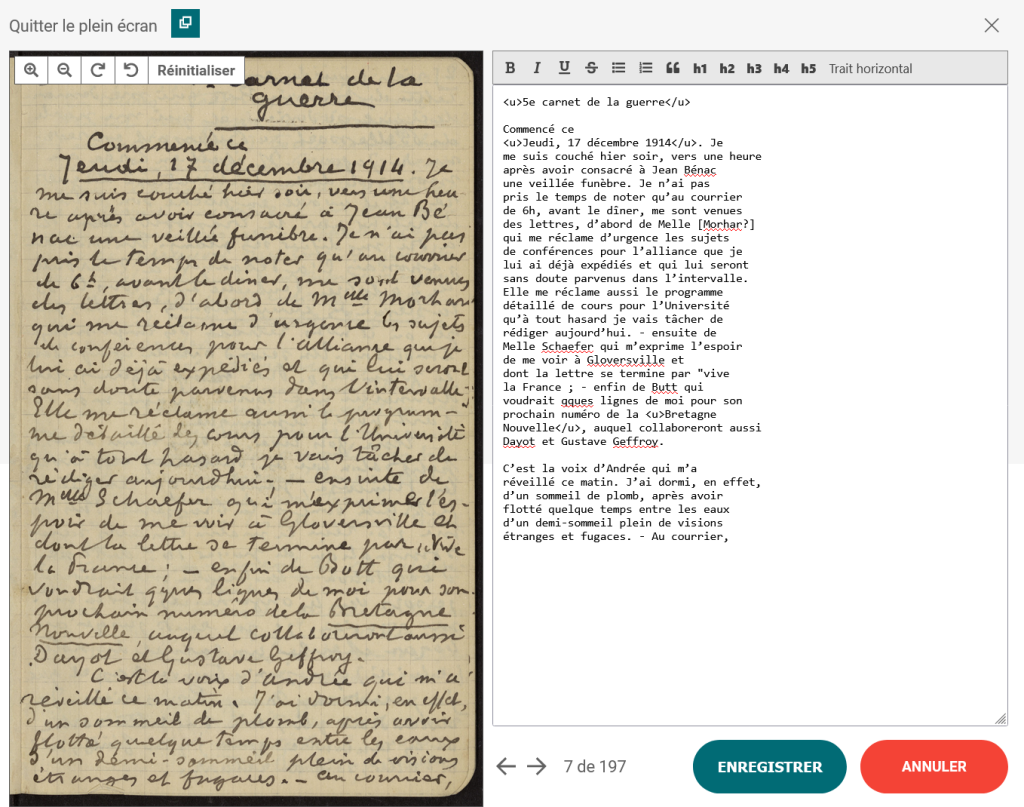 Quitter le plein écran
Réinitialiser
carnet de la
guerre
Commencé ce
Jeudi, 17 décembre 1914. Je
me suis couché hier soir, vers une heu
re après avoir consacré à Jean Bé
nac une veillée funèbre. Je n'ai pas
pris le temps de noter qu'au courrier
de 6h, avant le dîner, me sont venues
des lettres, d'abord de Melle Morhar
qui me réclame d'urgence les sujets
de conférences pour l'alliance que je
lui ai déjà expédiés et qui lui seront
sans doute parvenus dans l'intervalle.
Elle me réclame aussi le program-
me détaillé des cours pour l'Université
qu'à tout hasard je vais tâcher de
rédiger aujourdhui. — ensuite de
Melle Schaefer qui m'exprime l'es-
poir de me voir à Gloversville et
dont la lettre se termine par "vive
la France ; — enfin de Butt qui
voudrait qques lignes de moi pour son
prochain numéro de la Bretagne
Nouvelle, auquel collaboreront aussi
Dayot et Gustave Geffroy.
C'est la voix d'Andrée qui m'a
réveillé ce matin. J'ai dormi, en effet,
d'un sommeil de plomb, après avoir
flotté quelque temps entre les eaux
d'un demi-sommeil plein de visions
étranges et fugaces. — Au courrier,
B I U S h1 h2 h3 h4 h5 Trait horizontal
<u>5e carnet de la guerre</u>
Commencé ce
<u>Jeudi, 17 décembre 1914</u>. Je
me suis couché hier soir, vers une heure
après avoir consacré à Jean Bénac
une veillée funèbre. Je n'ai pas
pris le temps de noter qu'au courrier
de 6h, avant le dîner, me sont venues
des lettres, d'abord de Melle [Morhar?]
qui me réclame d'urgence les sujets
de conférences pour l'alliance que je
lui ai déjà expédiés et qui lui seront
sans doute parvenus dans l'intervalle.
Elle me réclame aussi le programme
détaillé de cours pour l'Université
qu'à tout hasard je vais tâcher de
rédiger aujourd'hui. - ensuite de
Melle Schaefer qui m'exprime l'espoir
de me voir à Gloversville et
dont la lettre se termine par "vive
la France ; - enfin de Butt qui
voudrait qques lignes de moi pour son
prochain numéro de la <u>Bretagne
Nouvelle</u>, auquel collaboreront aussi
Dayot et Gustave Geffroy.
C'est la voix d'Andrée qui m'a
réveillé ce matin. J'ai dormi, en effet,
d'un sommeil de plomb, après avoir
flotté quelque temps entre les eaux
d'un demi-sommeil plein de visions
étranges et fugaces. - Au courrier,
7 de 197
ENREGISTRER
ANNULER